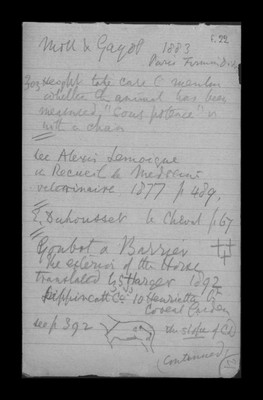 5.22
Moll & Gayot 1883
Paris Firmin Didot
303 Height take care to mention
whether the animal has been
measured "sous potence" or
with a chain
See Alexis Lemoigne
in Recueil de Médecine
vétérinaire 1877 p 489.
E. Duhousset le Cheval p 67
Goubot & Barrier
The exterior of the Horse
translated by Harger 1892
Lippincott Co 10 Henrietta St
Covent Garden
see p 392
(continued)